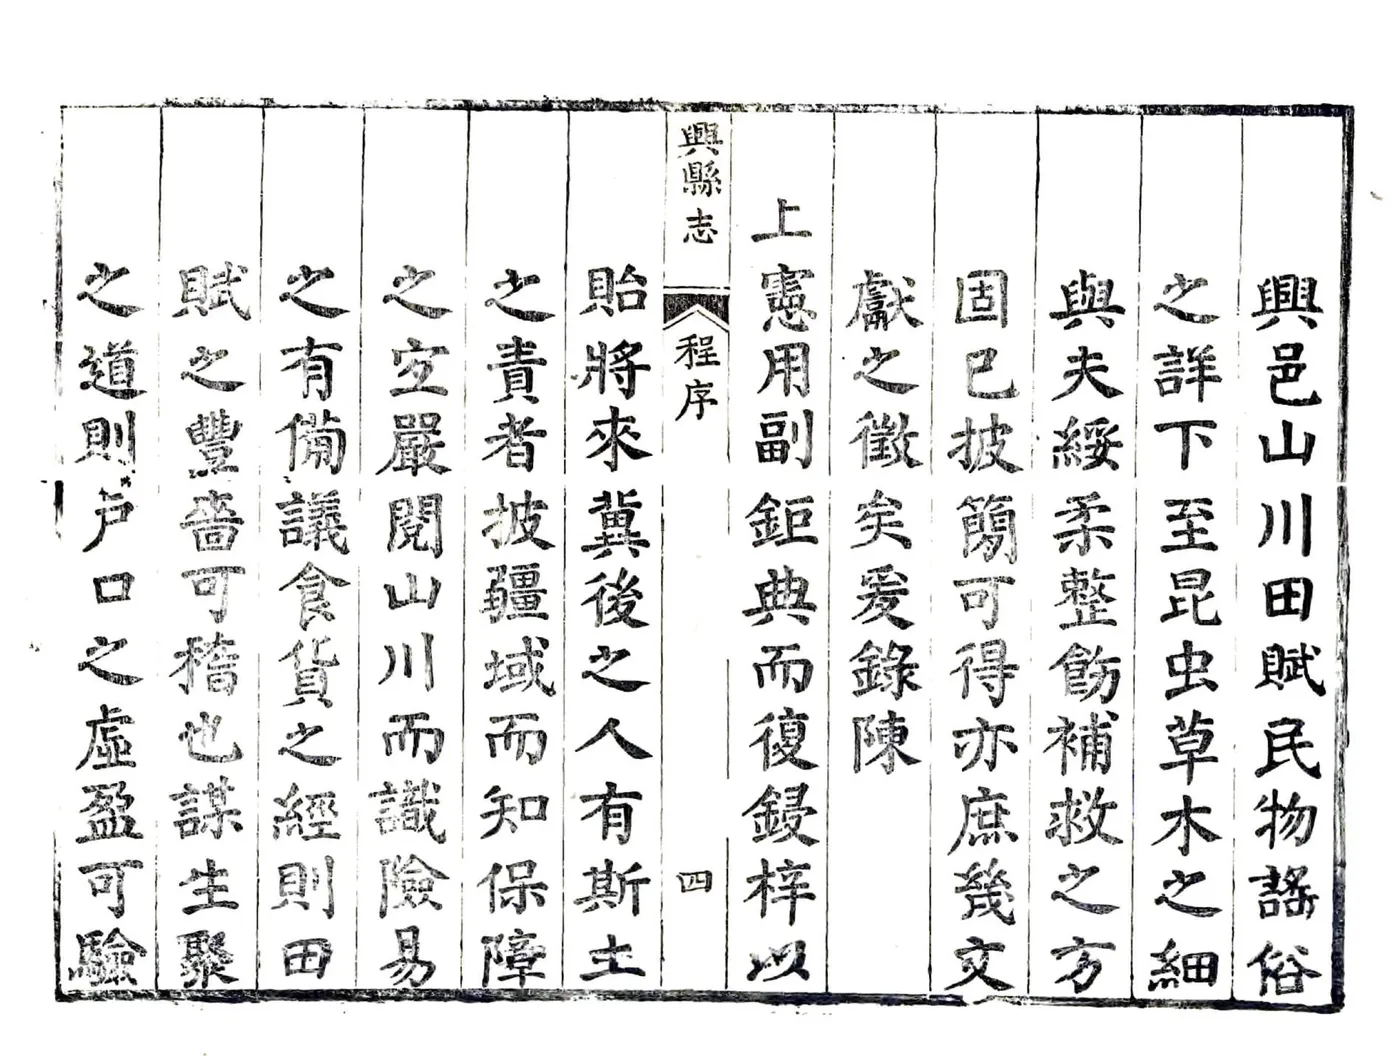 興邑山川田賦民物謠俗
之詳下至昆虫草木之細
與夫綏柔整飭補救之方
固已披簡可得亦庶幾文
獻之徵矣爰錄陳
上憲用副鉅典而復鋟梓以
興縣志
程序
四
貽將來冀後之人有斯土
之責者披疆域而知保障
之宜嚴閱山川而識險易
之有備議食貨之經則田
賦之豐嗇可稽也謀生聚
之道則戶口之虛盈可驗